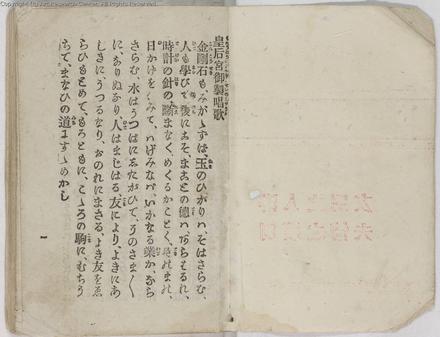 皇后宮御製唱歌
金剛石もみがゝずは、玉のひかりハ、そはざらむ、
人も學びて後にこそ、まことの德ハ、あらはるれ、
時計の針の隙まなく、めぐるがごとく、時のまの、
日かげをしみて、はげみなバ、いかなる業か、なら
ざらむ、水はうつはにしたがひて、そのさま〲
に、なりぬなり、人はまじはる、友により、よきにあ
しきに、うつるなり、おのれにまさる、よき友をゑ
らひもとめて、もろともに、こゝろの駒に、むちう
ちて、まなひの道にすゝめかし
一